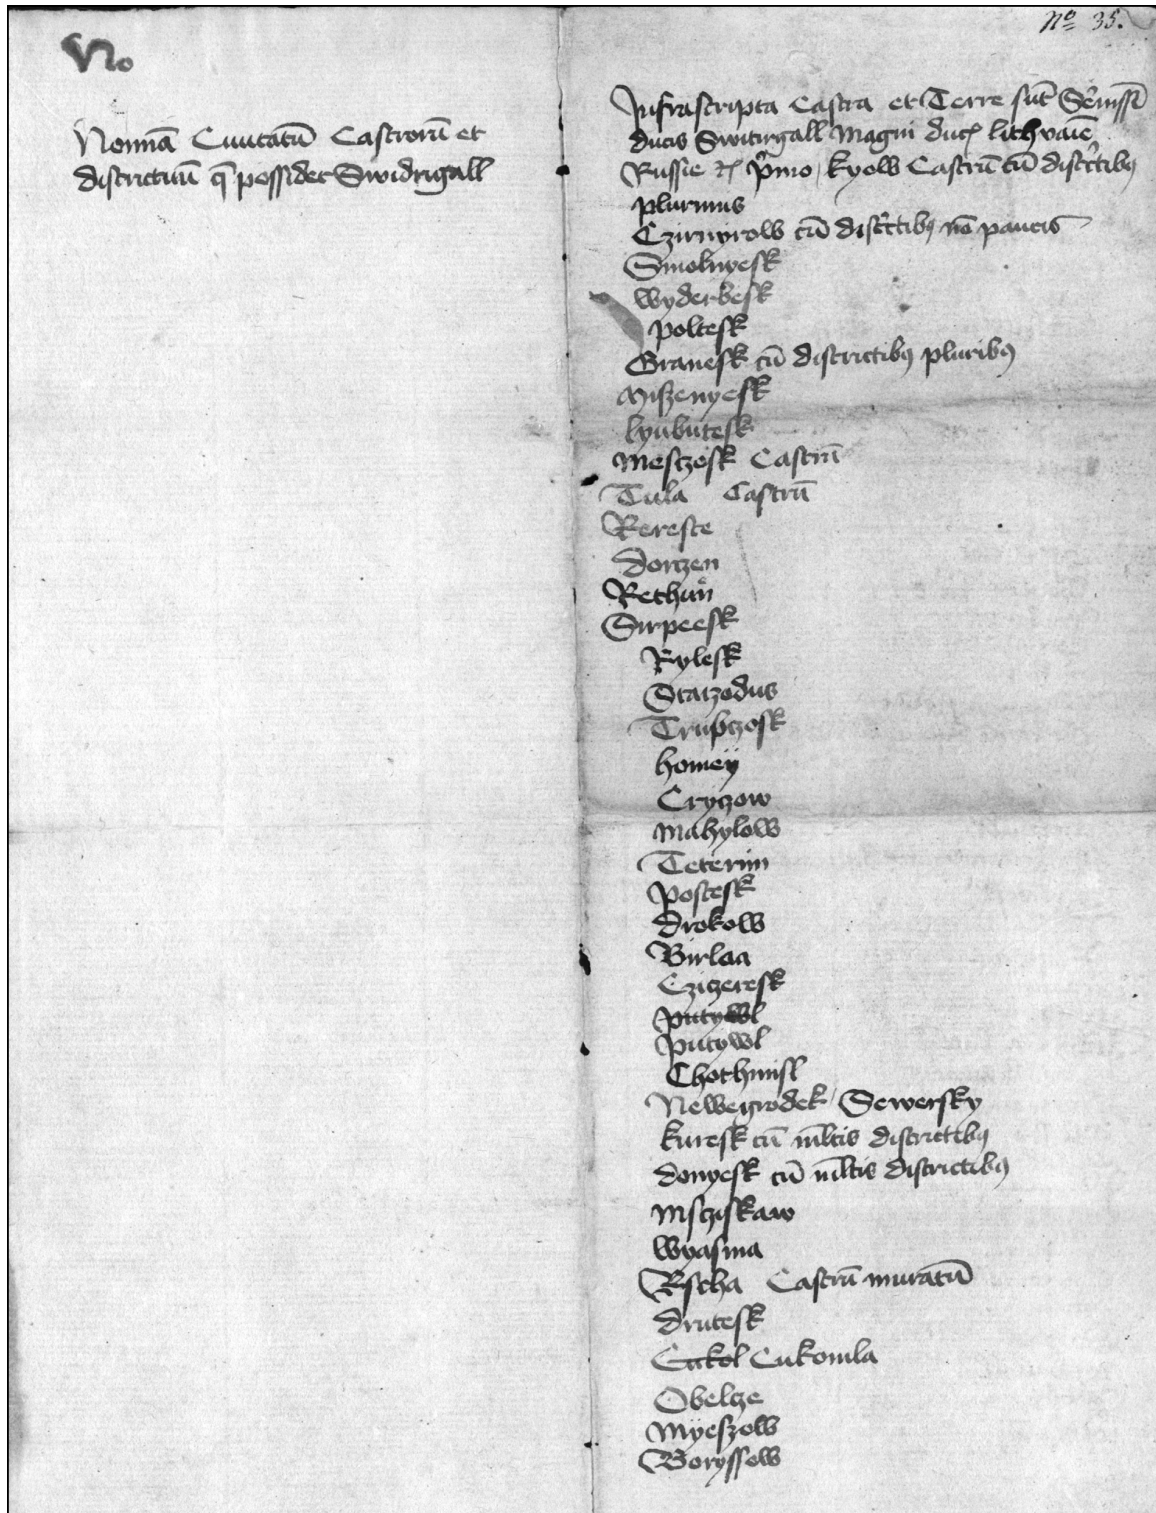 No
Nomīa Ciuitatū Castrorū et
districtuū q̄ possidet Swidrigall
Nº 35.
Infrascripta Castra et Terre sūt Sernissī
ducis Switirgall Magni ducꝭ lithvaīe
Russie ꝛc primo kyow Castrū cū discrictibꝰ
plurimis
Czirnyrow cū districtibꝰ nō paucis
Smolnyesk
Wyderbesk
poltesk
Branesk cū districtibꝰ pluribꝰ
Miszenyesk
lyubutesk
Mesczosk Castrū
Tula Castrū
Rereste
dorczen
Rethun
Sirpeesk
Rylesk
Starzodus
Trubczosk
homey
Cryczow
Mahylow
Teterim
Postesk
drokow
Birlaa
Cziczeresk
putywl
putywl
Chothmisl
Newegrodek Sewersky
kuresk cū mltis districtibꝰ
donyesk cū mltis districtibꝰ
Mscziskaw
Wyasma
Rscha Castrū muratū
drutesk
Cukol Cukomla
Obelcze
Myeszow
Boryssow